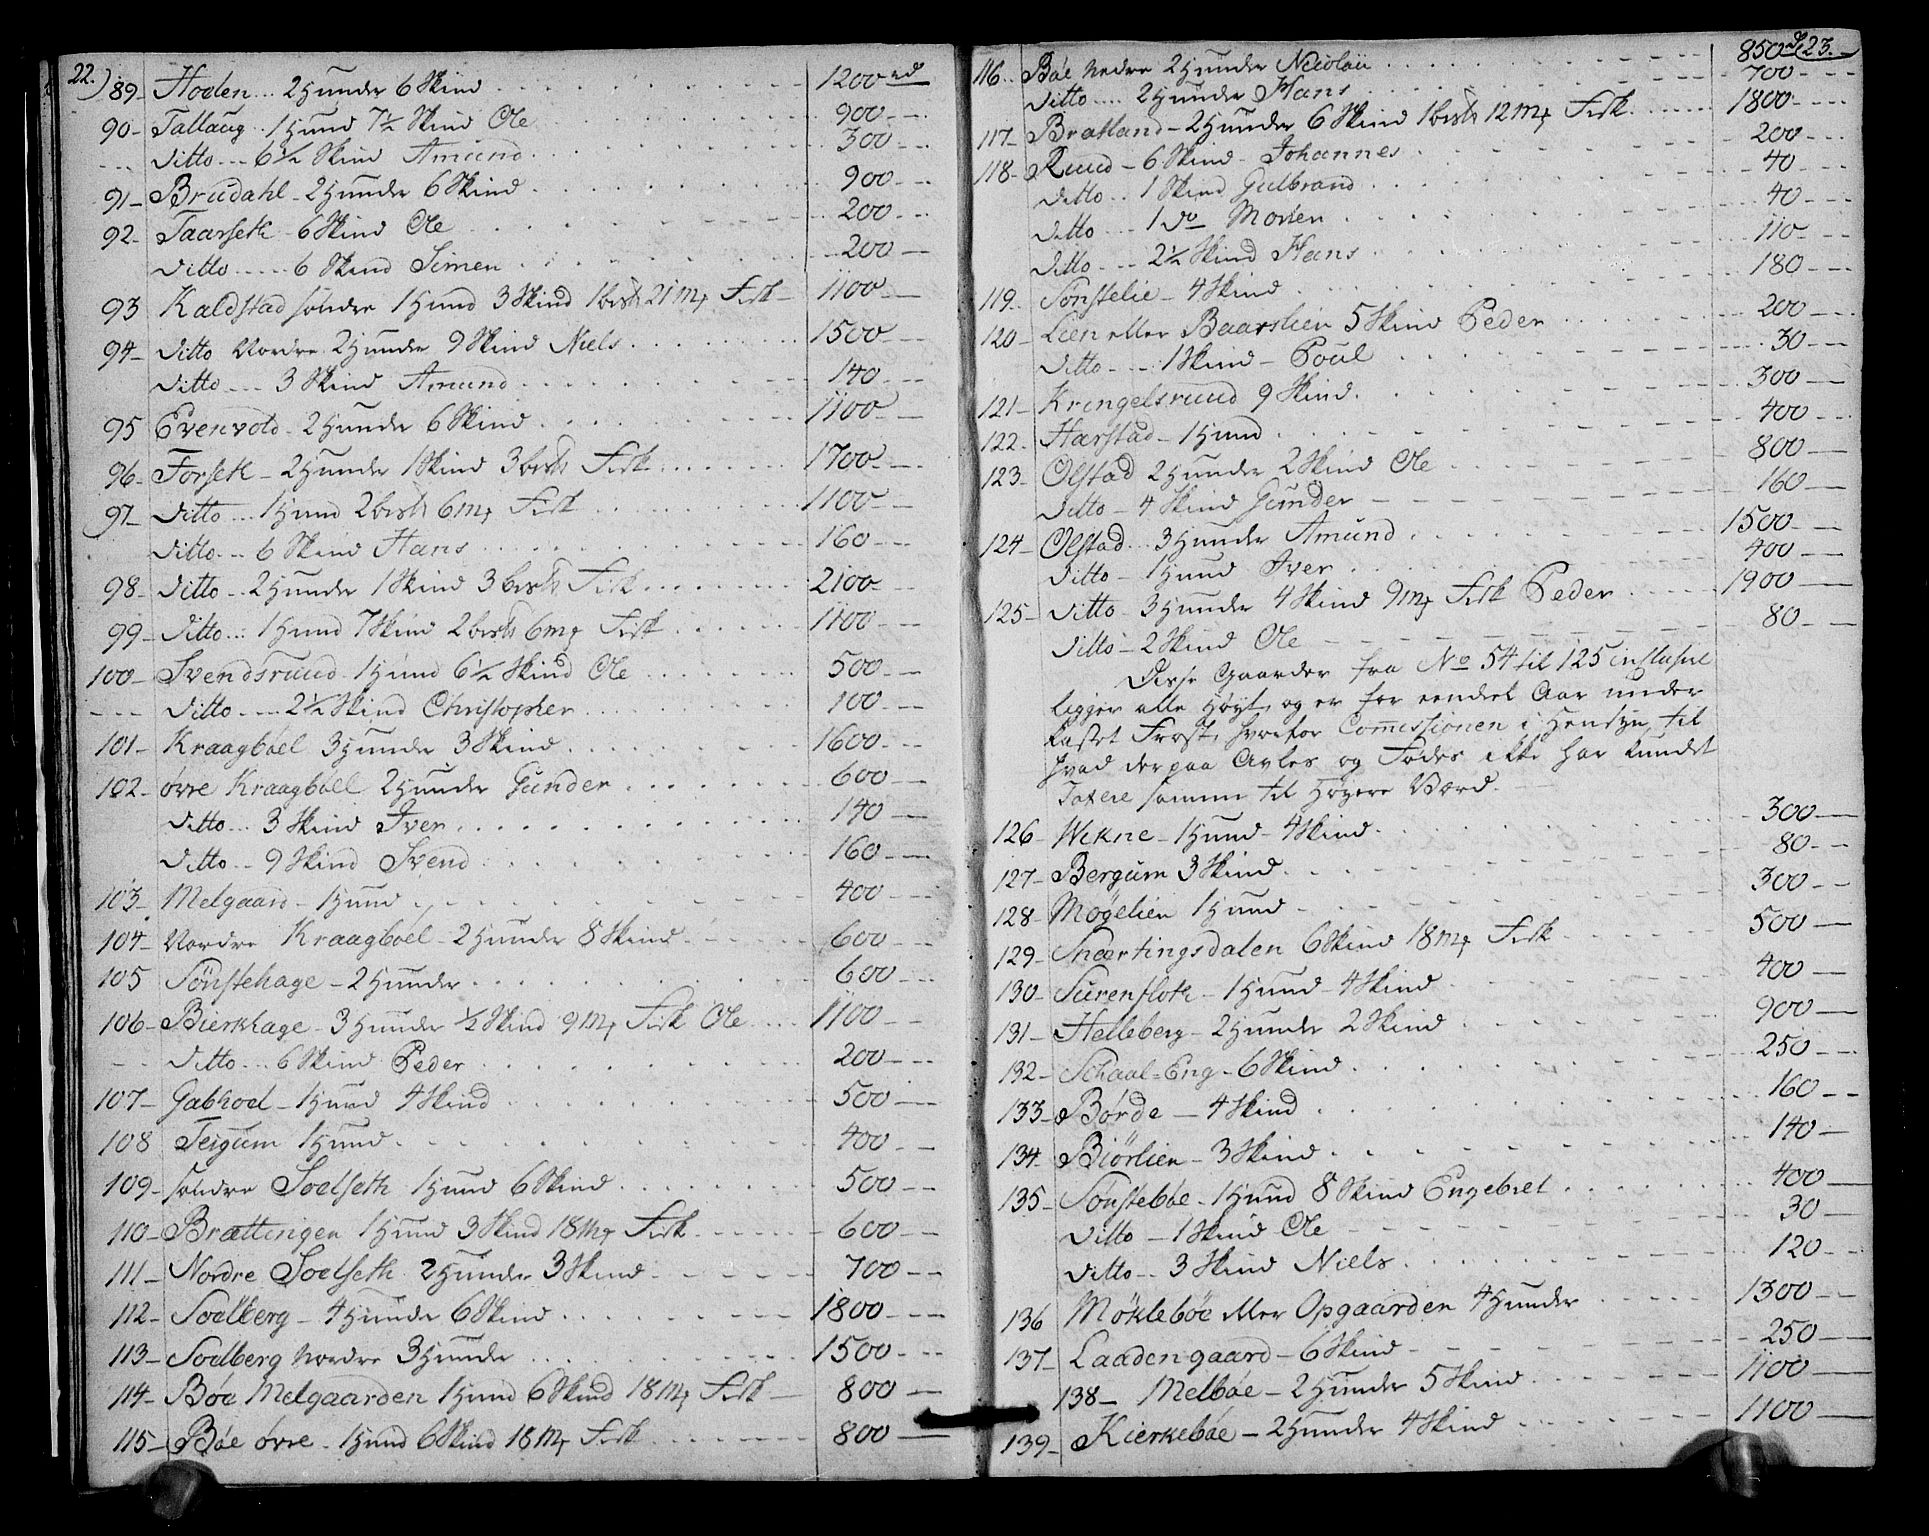 22.)
89 - Hoden... 2 Hunder 6 Skind 1200 rd
90 - Tallaug.. 1 Hund 7½ Skind Ole 900
Ditto... 6½ Skind Amund 300
91 - Brudahl - 2 Hunder 6 Skind 900
92 - Taarseth - 6 Skind Ole 200
Ditto..... 6 Skind Simen 200
93 Kaldstad søndre 1 Hund 3 Skind 1 bisk 21 Mk Fisk - 1100
94 - Ditto Nordre 2 Hunder 9 Skind Niels 1500
Ditto... 3 Skind Amund 140
95 Evenvold - 2 Hunder 6 Skind 1100
96 - Forseth - 2 Hunder 1 Skind 3 bisk Fisk 1700
97 - Ditto... 1 Hund 2 bisk 6 Mk Fisk 1100
Ditto... 6 Skind Hans 160
98 - Ditto... 2 Hunder 1 Skind 3 bisk Fisk 2100
99 - Ditto... 1 Hund 7 Skind 2 bisk 6 Mk Fisk 1100
100 - Svendsruud - 1 Hund 6½ Skind Ole 500
Ditto.... 2½ Skind Christopher 100
101 - Kraagbøel 3 Hunder 3 Skind 1600
102 - øvre Kraagbøll 2 Hunder Gunder 600
Ditto... 3 Skind Iver 140
Ditto... 9 Skind Svend 160
103 - Melgaard - 1 Hund 400
104 - Nordre Kraagbøel - 2 Hunder 8 Skind 600
105 Sønstehage - 2 Hunder 600
106 - Bierkhage - 3 Hunder ½ Skind 9 Mk Fisk Ole 1100
Ditto... 6 Skind Peder 200
107 - Gabhoel - 1 Hund 4 Skind 500
108 Teigum 1 Hund 400
109 - søndre Soelseth 1 Hund 6 Skind 500
110 - Brættingen 1 Hund 3 Skind 18 Mk Fisk 600
111 - Nordre Soelseth 2 Hunder 3 Skind 700
112 - Soelberg - 4 Hunder 6 Skind 1800
113 - Soelberg Nordre 3 Hunder 1500
114 - Bøe Melgaarden 1 Hund 6 Skind 18 Mk Fisk - 800
115 - Bøe øvre - 1 Hund 6 Skind 18 Mk Fisk 800
23.
116.. Bøe Nedre 2 Hunder Nicolai 850
Ditto.... 2 Hunder Hans 700
117 - Bratland - 2 Hunder 6 Skind 1 bisk 12 Mk Fisk 1800
118 - Ruud - 6 Skind - Johannes 200
Ditto... 1 Skind Gulbrand 40
Ditto... 1 do Morten 40
Ditto... 2½ Skind Hans 110
119.. Sønstelie - 4 Skind 180
120 - Lien eller Baarslien 5 Skind Peder 200
Ditto... 1 Skind - Poul 30
121 - Kringelsruud 9 Skind 300
122.. Harstad - 1 Hund 400
123 - Olstad 2 Hunder 2 Skind Ole 800
Ditto - 4 Skind Gunder 160
124 - Olstad... 3 Hunder Amund 1500
Ditto - 1 Hund Iver 400
125 - Ditto - 3 Hunder 4 Skind 9 Mk Fisk Peder 1900
Ditto - 2 Skind Ole 80
Disse Gaarder fra No 54 til 125 inclusive
ligger alle Høyt, og er for eendeel Aar under
kastet Frost, hvorfor Comissionen i Hensyn til
hvad derpaa Avles og Fødes ikke har kundet
Taxere samme til Høyere Værd.
126 - Wekne - 1 Hund - 4 Skind 300
127 - Bergum 3 Skind 80
128 - Møgelien 1 Hund 300
129 - Snærtingsdalen 6 Skind 18 Mk Fisk 500
130 - Surenfloth - 1 Hund - 4 Skind 400
131 - Helleberg - 2 Hunder 2 Skind 900
132 - Schaal-Eng - 6 Skind 250
133 - Børde - 4 Skind 160
134 - Biørlien - 3 Skind 140
135 - Sønstebøe - 1 Hund 8 Skind Engebret 400
Ditto - 1 Skind Ole 30
Ditto... 3 Skind Niels 120
136 Møklebøe eller Opgaarden 4 Hunder 1300
137 - Laadengaard - 6 Skind 250
138 - Melbøe - 2 Hunder 5 Skind 1100
139 - Kierkebøe - 2 Hunder 4 Skind 1100